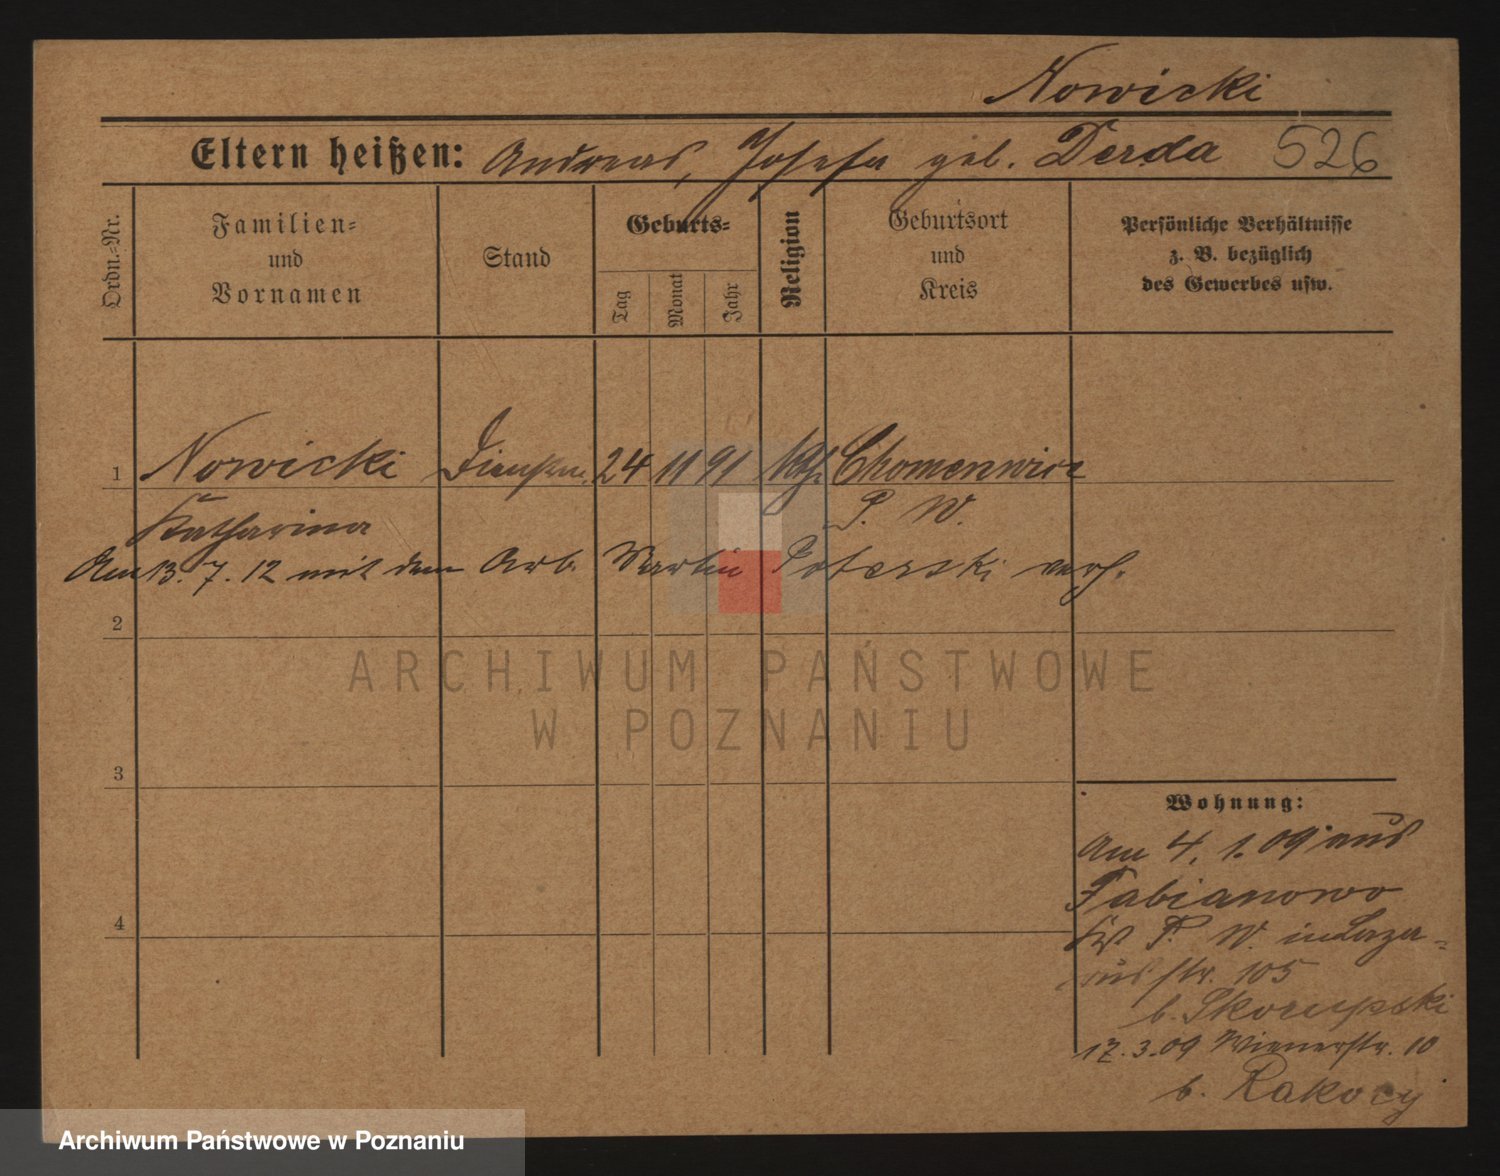 Nowicki
Eltern heißen: Andreas, Josefa geb. Derda 526
Ordn.-Nr.
Familien-
und
Vornamen
Stand
Geburts-
Tag
Monat
Jahr
Religion
Geburtsort
und
Kreis
Persönliche Verhältnisse
z. B. bezüglich
des Gewerbes usw.
1 Nowicki Dienstm. 24 11 91 Kth. Chomencice
Katharina P. W.
Am 13. 7. 12 mit dem Arb. Martin Paterski verh.
2
3
4
Wohnung:
Am 4. 1. 09 aus
Fabianowo
Krs P. W. in Laza-
russtr. 105
b. Skorupski
17. 3. 09 Wienerstr. 10
b. Rakocy
ARCHIWUM PAŃSTWOWE
W POZNANIU
Archiwum Państwowe w Poznaniu